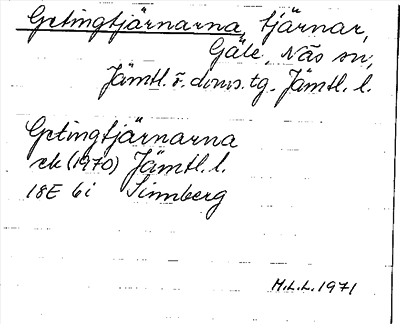 Getingtjärnarna, tjärnar,
Gåle, Näs sn,
Jämtl. ö. doms. tg. Jämtl. l.
Getingtjärnarna
ek (1970) Jämtl. l.
18E 6i Sinnberg
M.L.L. 1971